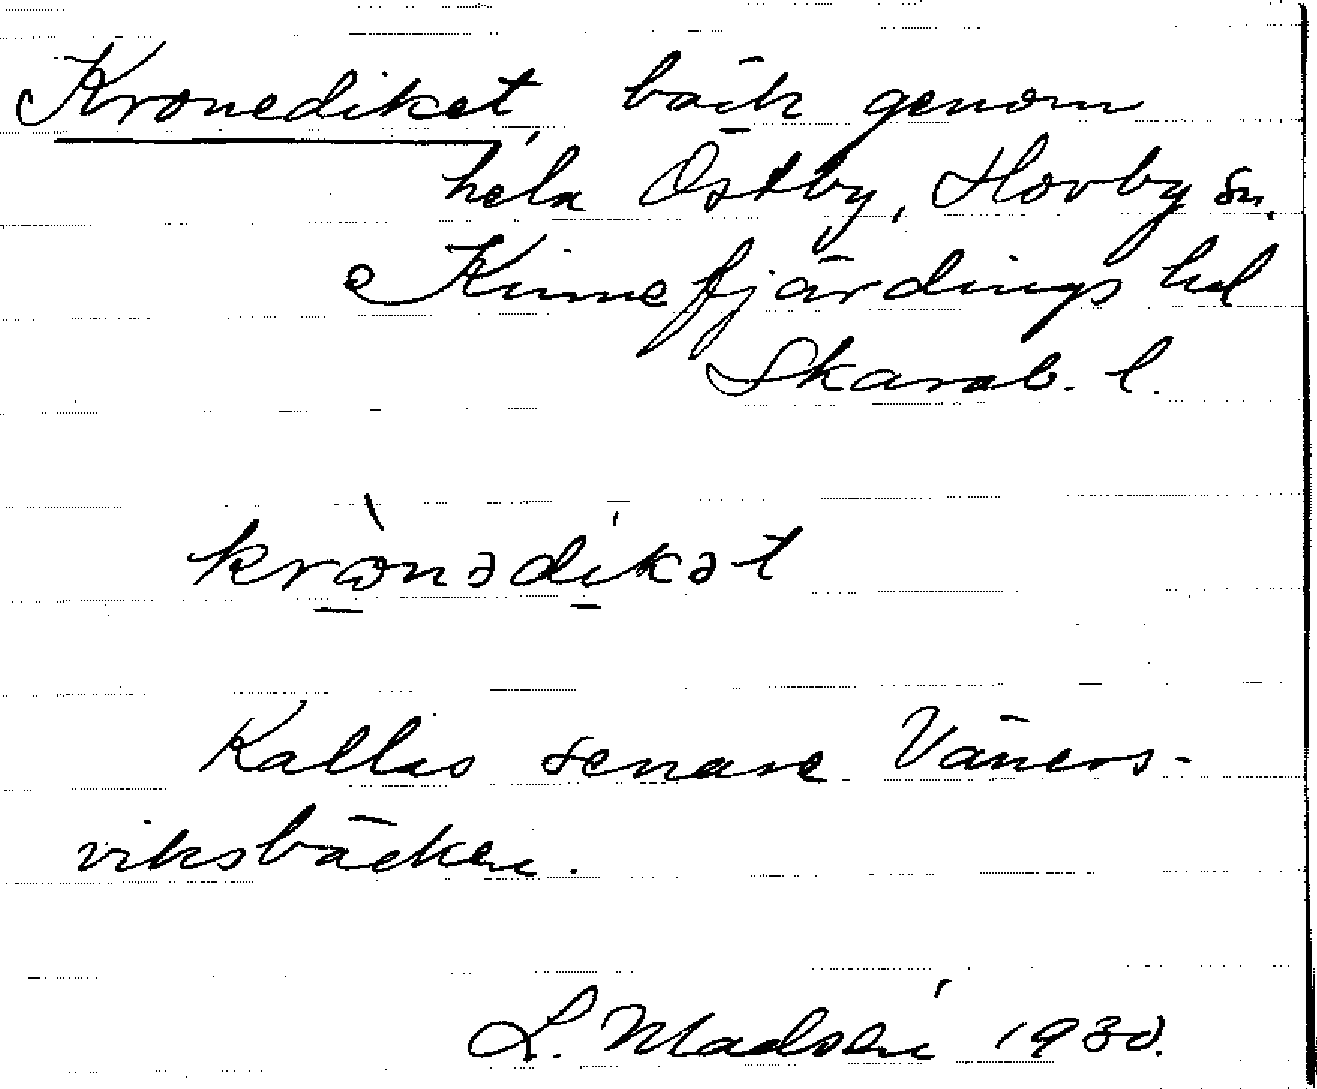 Kronediket, bäck genom
hela Östby, Hovby sn.
Kinnefjärdings hd
Skarab. l.
krònədíkət
Kallas senare Väners-
viksbäcken.
L. Madsén 1930.